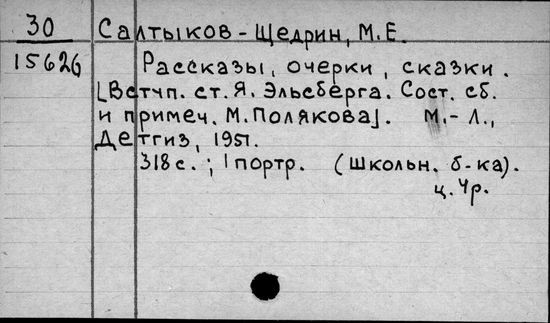 30 Салтыков-Щедрин, М.Е.
15626 Рассказы, очерки, сказки.
[Вступ. ст. Я. Эльсберга. Сост. сб.
и примеч. М. Полякова]. М.-Л.,
Детгиз, 1951.
318 с.; 1 портр. (Школьн. б-ка).
ц. 4р.